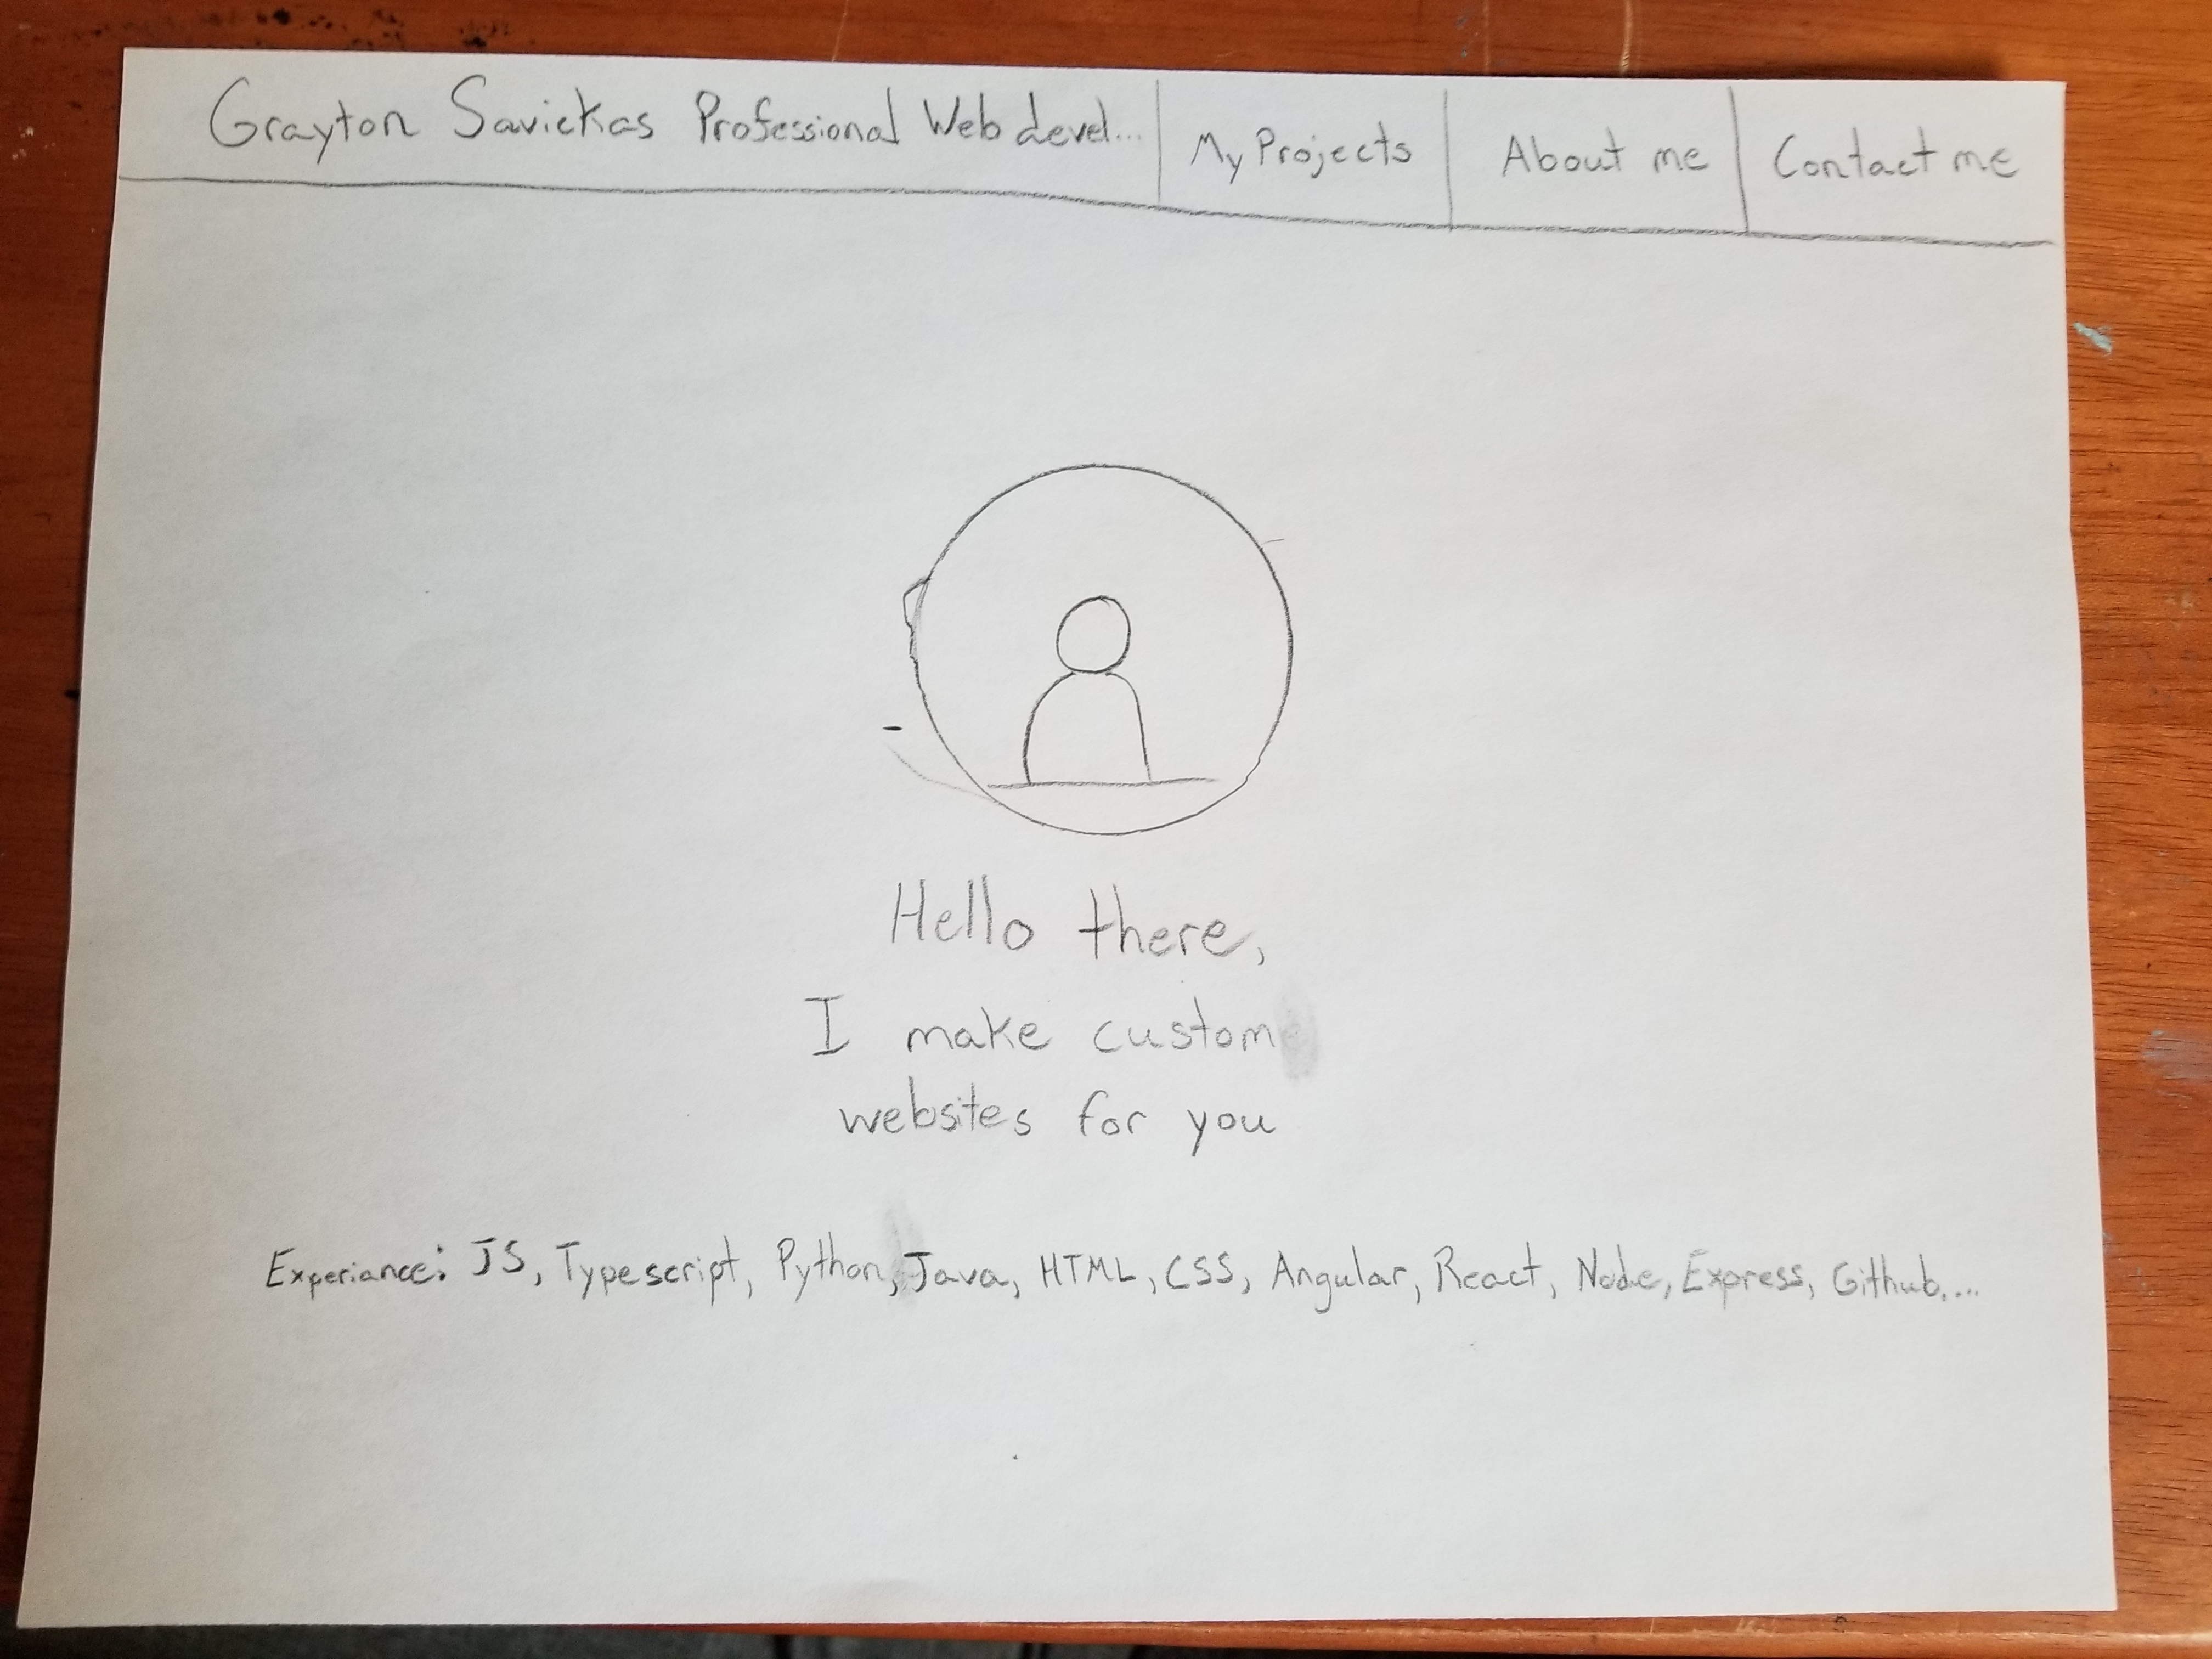 Grayton Savickas Professional Web devel...
My Projects
About me
Contact me
Hello there,
I make custom
websites for you
Experiance: JS, Typescript, Python, Java, HTML, CSS, Angular, React, Node, Express, Github,...